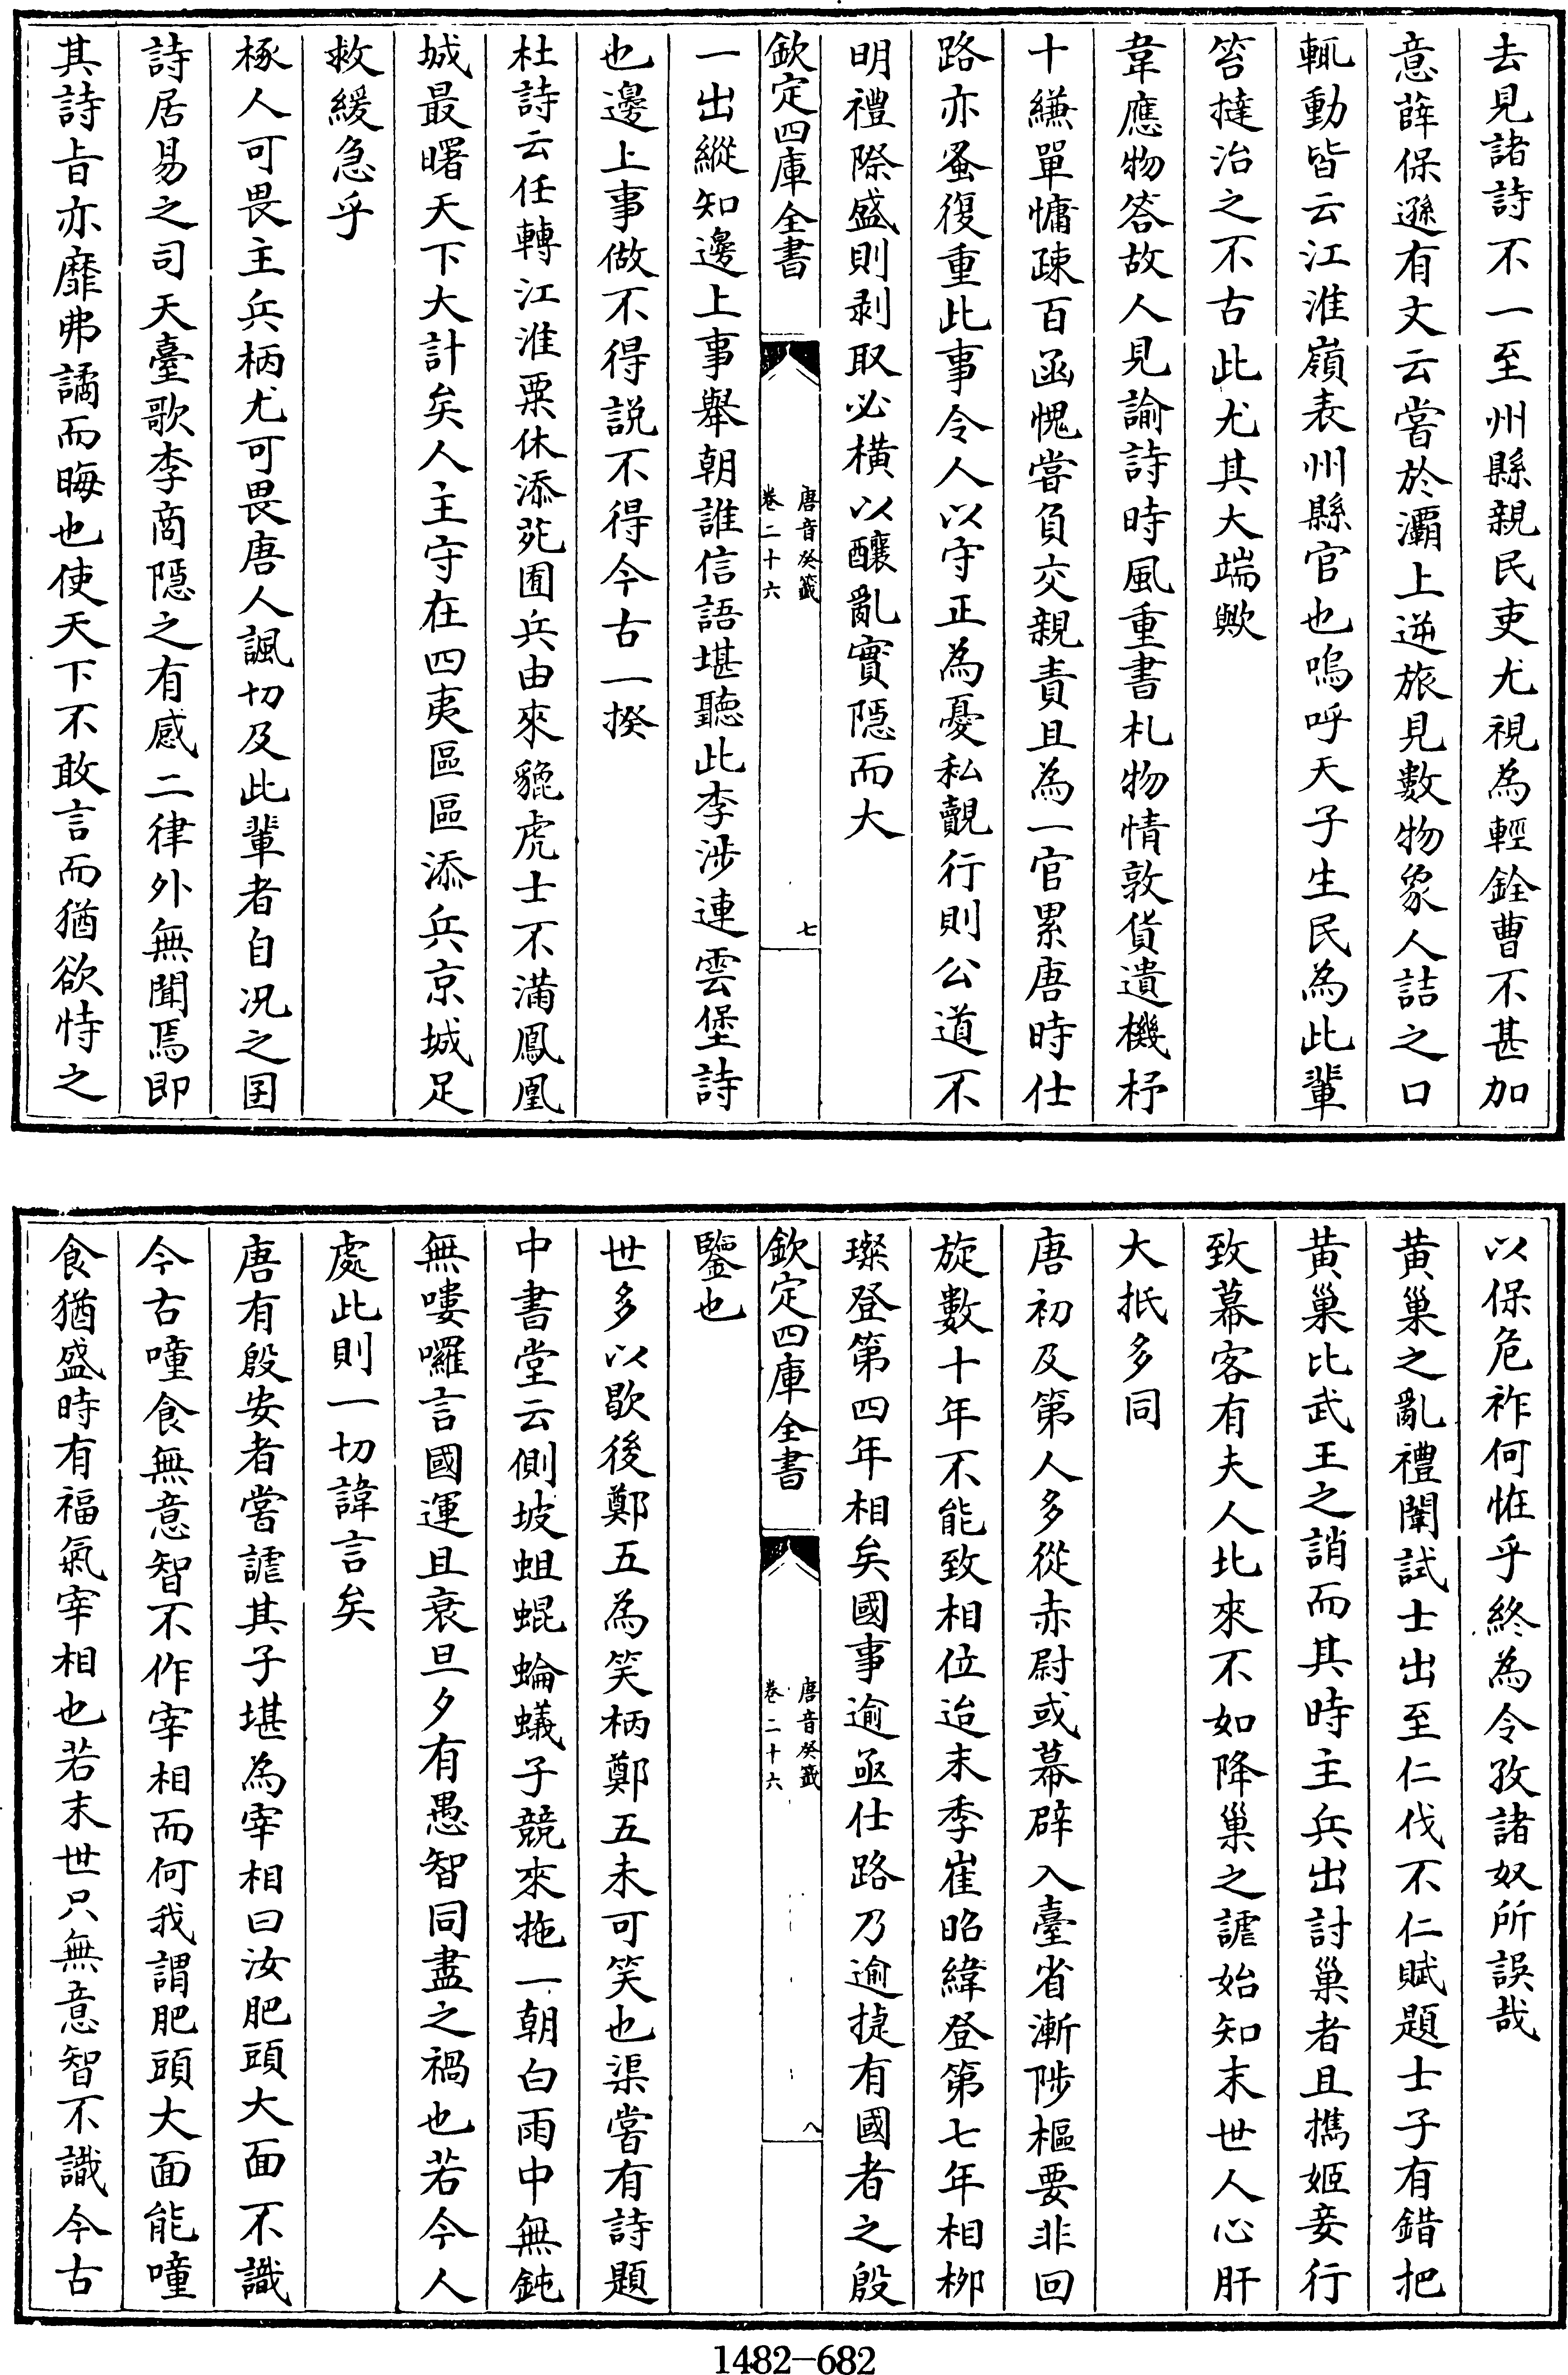 去見諸詩不一至州縣親民吏尤視為輕銓曹不甚加
意薛保遜有文云嘗於灞上逆旅見數物象人詰之口
輒動皆云江淮嶺表州縣官也嗚呼天子生民為此輩
笞撻治之不古此尤其大端歟
韋應物答故人見諭詩時風重書札物情敦貨遺機杼
十縑單慵疎百函愧嘗負交親責且為一官累唐時仕
路亦蚤復重此事令人以守正為憂私覿行則公道不
明禮際盛則剥取必橫以釀亂實隱而大
欽定四庫全書
唐音癸籤
卷二十六
七
一出縱知邊上事舉朝誰信語堪聽此李涉連雲堡詩
也邊上事做不得説不得今古一揆
杜詩云任轉江淮粟休添苑囿兵由來貔虎士不滿鳳凰
城最曙天下大計矣人主守在四夷區區添兵京城足
救緩急乎
椓人可畏主兵柄尤可畏唐人諷切及此輩者自况之囯
詩居易之司天臺歌李商隱之有感二律外無聞焉即
其詩㫖亦靡弗譎而晦也使天下不敢言而猶欲恃之
以保危祚何恠乎終為令孜諸奴所誤哉
黄巢之亂禮闈試士出至仁伐不仁賦題士子有錯把
黄巢比武王之誚而其時主兵出討巢者且攜姬妾行
致幕客有夫人北來不如降巢之謔始知末世人心肝
大抵多同
唐初及第人多從赤尉或幕辟入臺省漸陟樞要非回
旋數十年不能致相位迨末季崔昭緯登第七年相栁
璨登第四年相矣國事逾亟仕路乃逾捷有國者之殷
欽定四庫全書
唐音癸籤
卷二十六
八
鑒也
世多以歇後鄭五為笑柄鄭五未可笑也渠嘗有詩題
中書堂云側坡蛆蜫蜦蟻子競來拖一朝白雨中無鈍
無嘍囉言國運且衰旦夕有愚智同盡之禍也若今人
處此則一切諱言矣
唐有殷安者嘗謔其子堪為宰相曰汝肥頭大面不識
今古噇食無意智不作宰相而何我謂肥頭大面能噇
食猶盛時有福氣宰相也若末世只無意智不識今古
1482—682